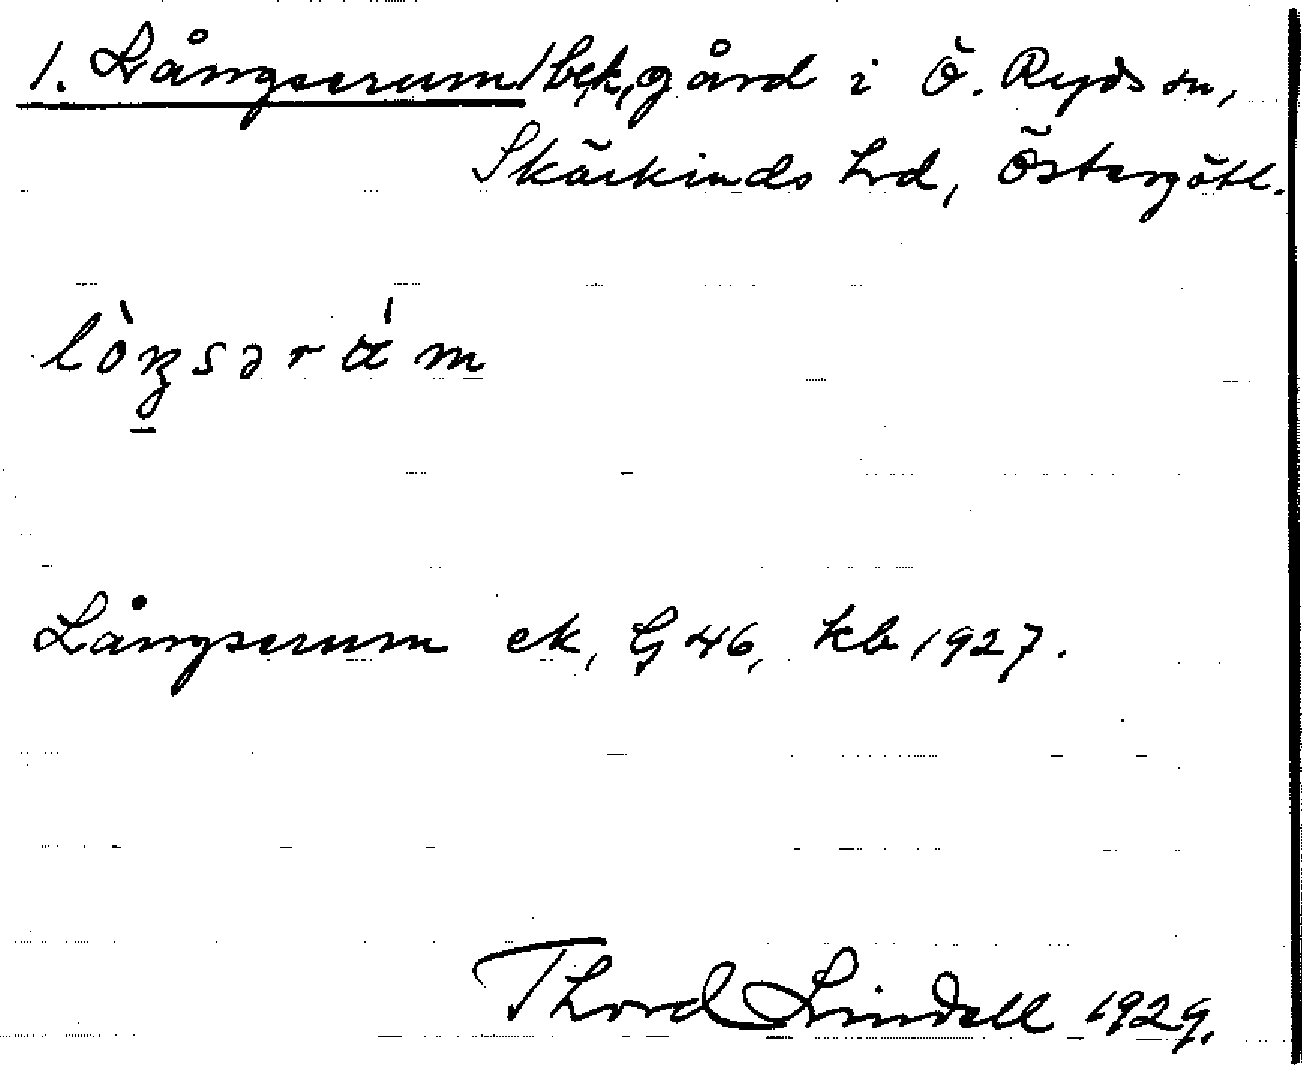 1. Långserum/bck, gård i Ö. Ryds sn,
Skärkinds hd, Östergötl.
lòŋsərám
Långserum ek, G 46, kb 1927.
Thord Lindell 1929.